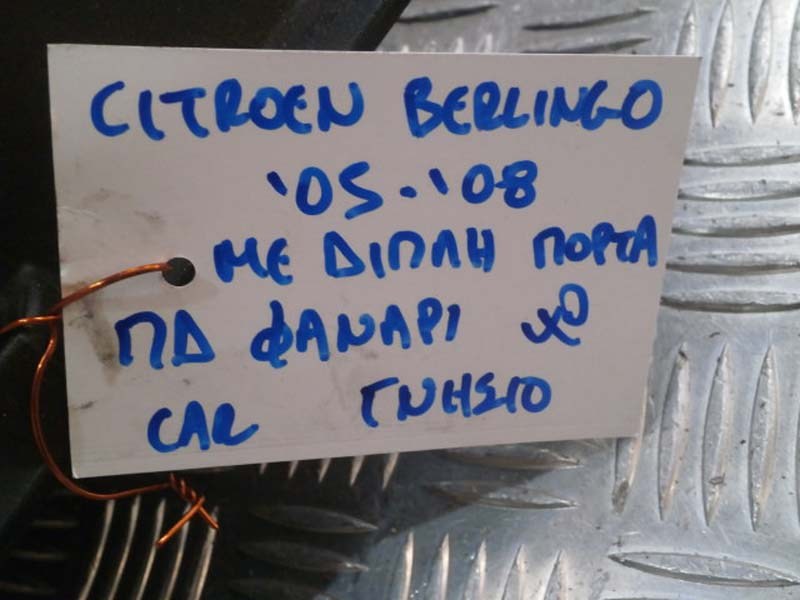 CITROEN BERLINGO
'05-'08
ΜΕ ΔΙΠΛΗ ΠΟΡΤΑ
ΠΔ ΦΑΝΑΡΙ
CAR ΓΝΗΣΙΟ